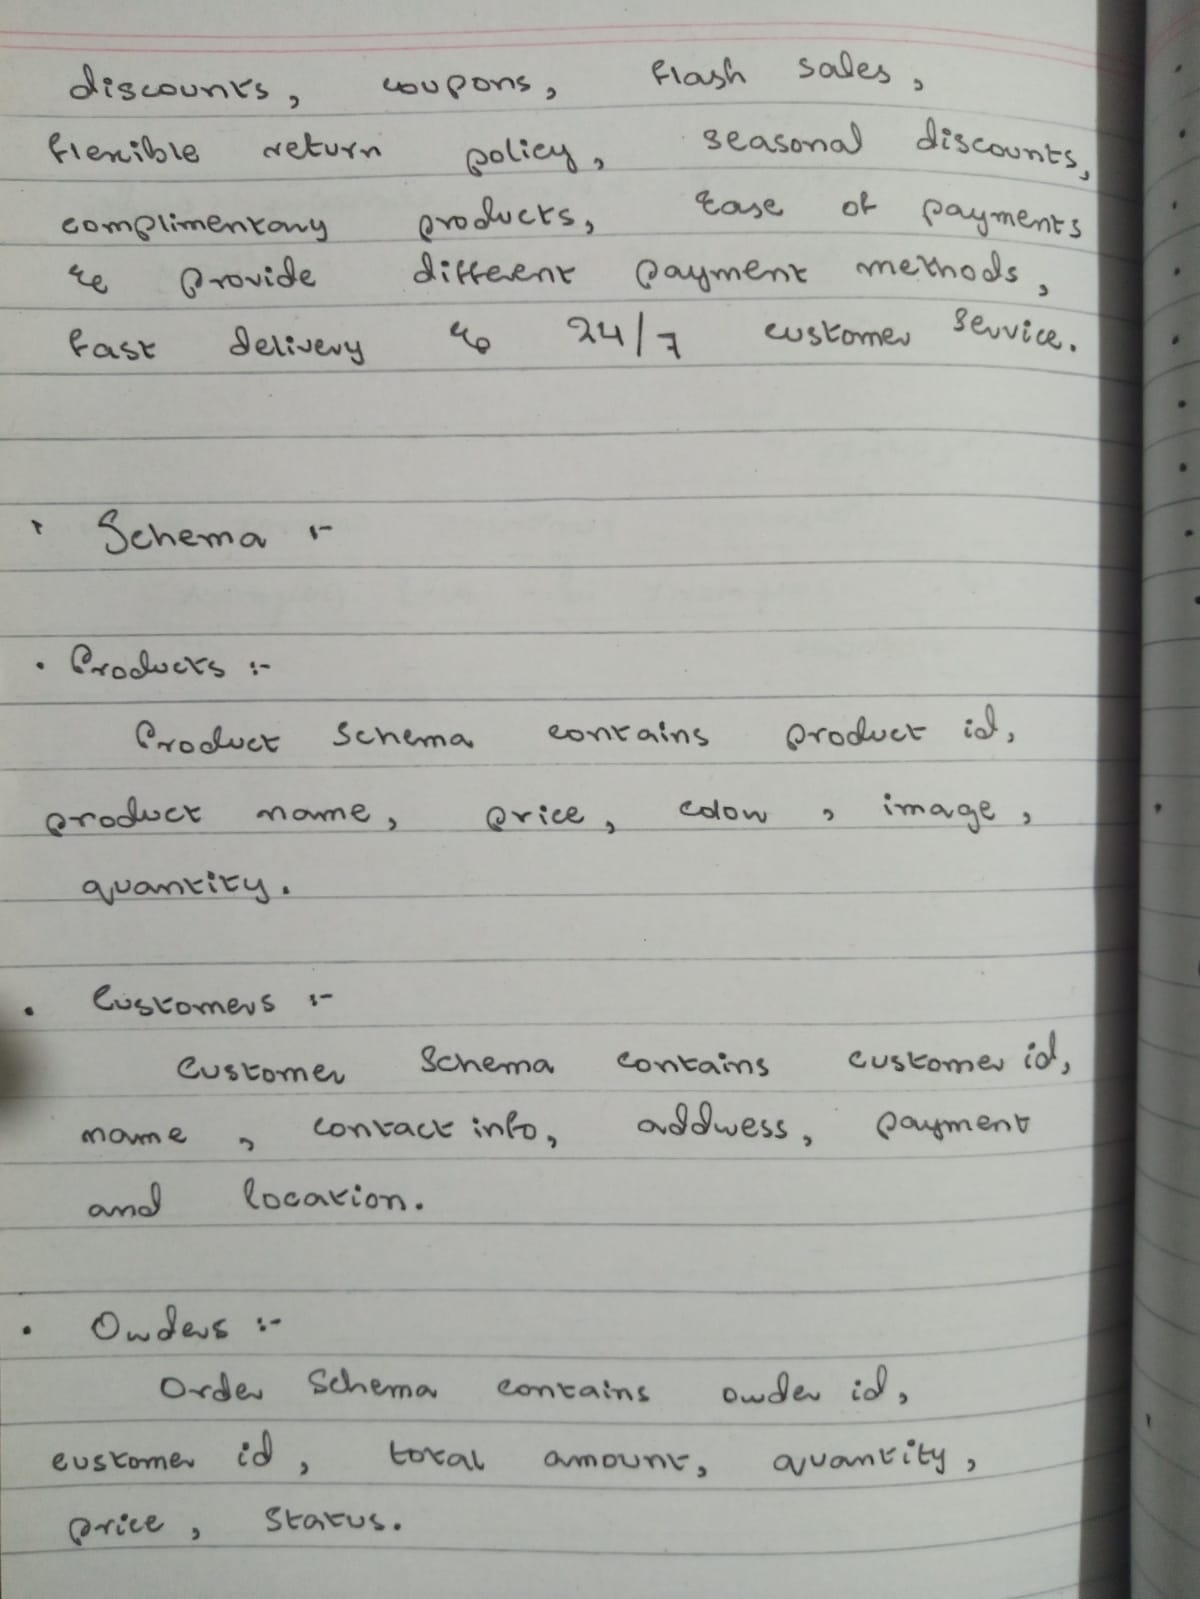 discounts, coupons, flash sales,
flexible return policy, seasonal discounts,
complimentary products, Ease of payments
& provide different payment methods,
fast delivery & 24/7 customer service.
Schema :-
• Products :-
Product Schema contains product id,
product name, price, color, image,
quantity.
• Customers :-
Customer Schema contains customer id,
name, contact info, address, payment
and location.
• Orders :-
Order Schema contains order id,
customer id, total amount, quantity,
price, status.